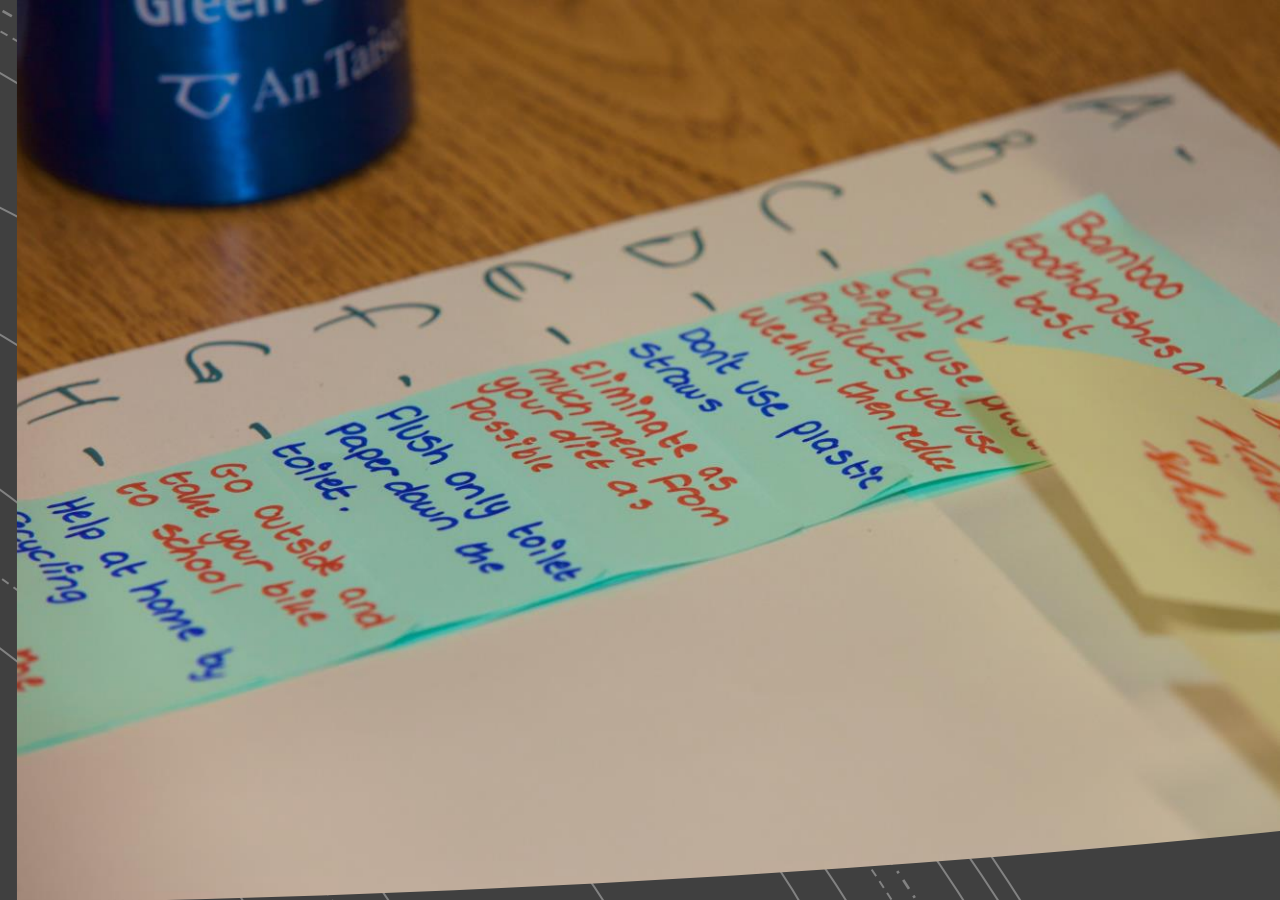 Green
An Tais
A -
B -
Bamboo
toothbrushes
the best
C -
Count
single use
products you use
weekly, then reduce
D -
Don't use plastic
straws
E -
Eliminate as
much meat from
your diet as
possible
F -
Flush only toilet
paper down the
toilet.
G -
Go outside and
take your bike
to school
H -
Help at home by
in
School